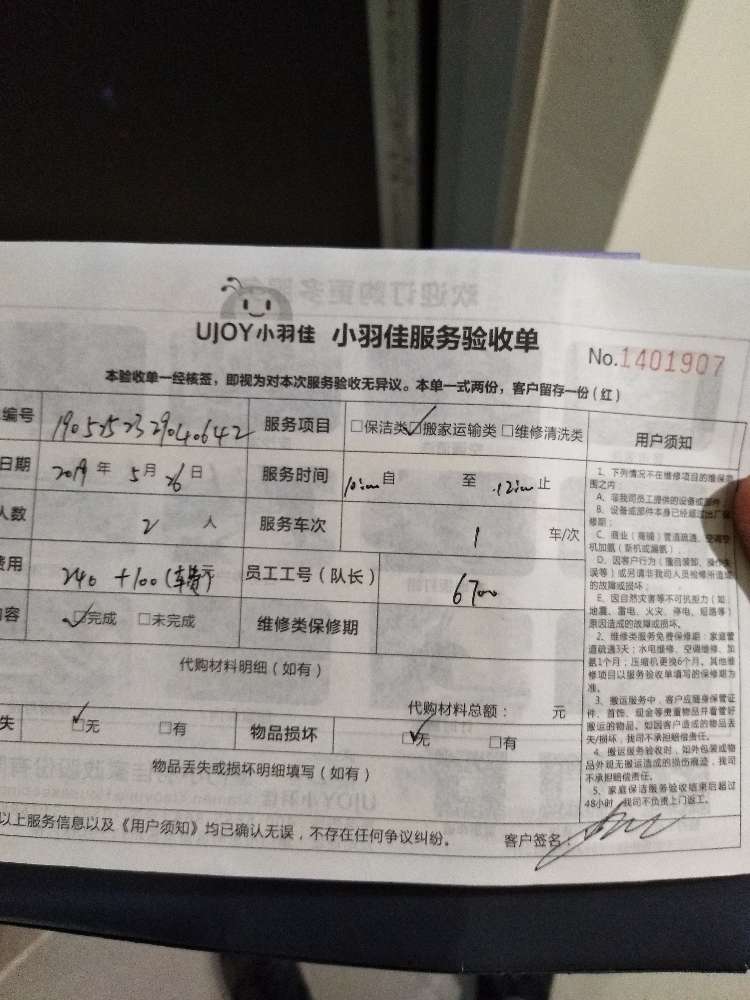 UJOY小羽佳 小羽佳服务验收单
No.1401907
本验收单一经核签，即视为对本次服务验收无异议。本单一式两份，客户留存一份（红）
编号 1905252329040642 服务项目 □保洁类 ☑搬家运输类 □维修清洗类 用户须知
日期 2019 年 5 月 26 日 服务时间 10:00 自 至 12:00 止
人数 2 人 服务车次 1 车/次
费用 240 +100（车费） 员工工号（队长） 6700
内容 ☑完成 □未完成 维修类保修期
代购材料明细（如有）
代购材料总额： 元
失 ☑无 □有 物品损坏 ☑无 □有
物品丢失或损坏明细填写（如有）
以上服务信息以及《用户须知》均已确认无误，不存在任何争议纠纷。 客户签名：
1、下列情况不在维修项目的维保范
围之内：
A、非我司员工提供的设备或部件
B、设备或部件本身已经超过出厂保
修期；
C、商业（商铺）管道疏通、空调空
机加氨（新机或漏氨）
D、因客户行为（擅自装卸、操作失
误等）或另请非我司人员检修所造成
的故障或损坏；
E、因自然灾害等不可抗拒力（如：
地震、雷电、火灾、停电、短路等）
原因造成的故障或损坏。
2、维修类服务免费保修期：家庭管
道疏通3天；水电维修、空调维修、加
氨1个月；压缩机更换6个月。其他维
修项目以服务验收单填写的保修期为
准。
3、搬运服务中，客户应随身保管证
件、首饰、现金等贵重物品并看管好
搬运的物品。如因客户造成的物品丢
失/损坏，我司不承担赔偿责任。
4、搬运服务验收时，如外包装或物
品外观无搬运造成的损伤痕迹，我司
不承担赔偿责任。
5、家庭保洁服务验收结束后超过
48小时，我司不负责上门返工。